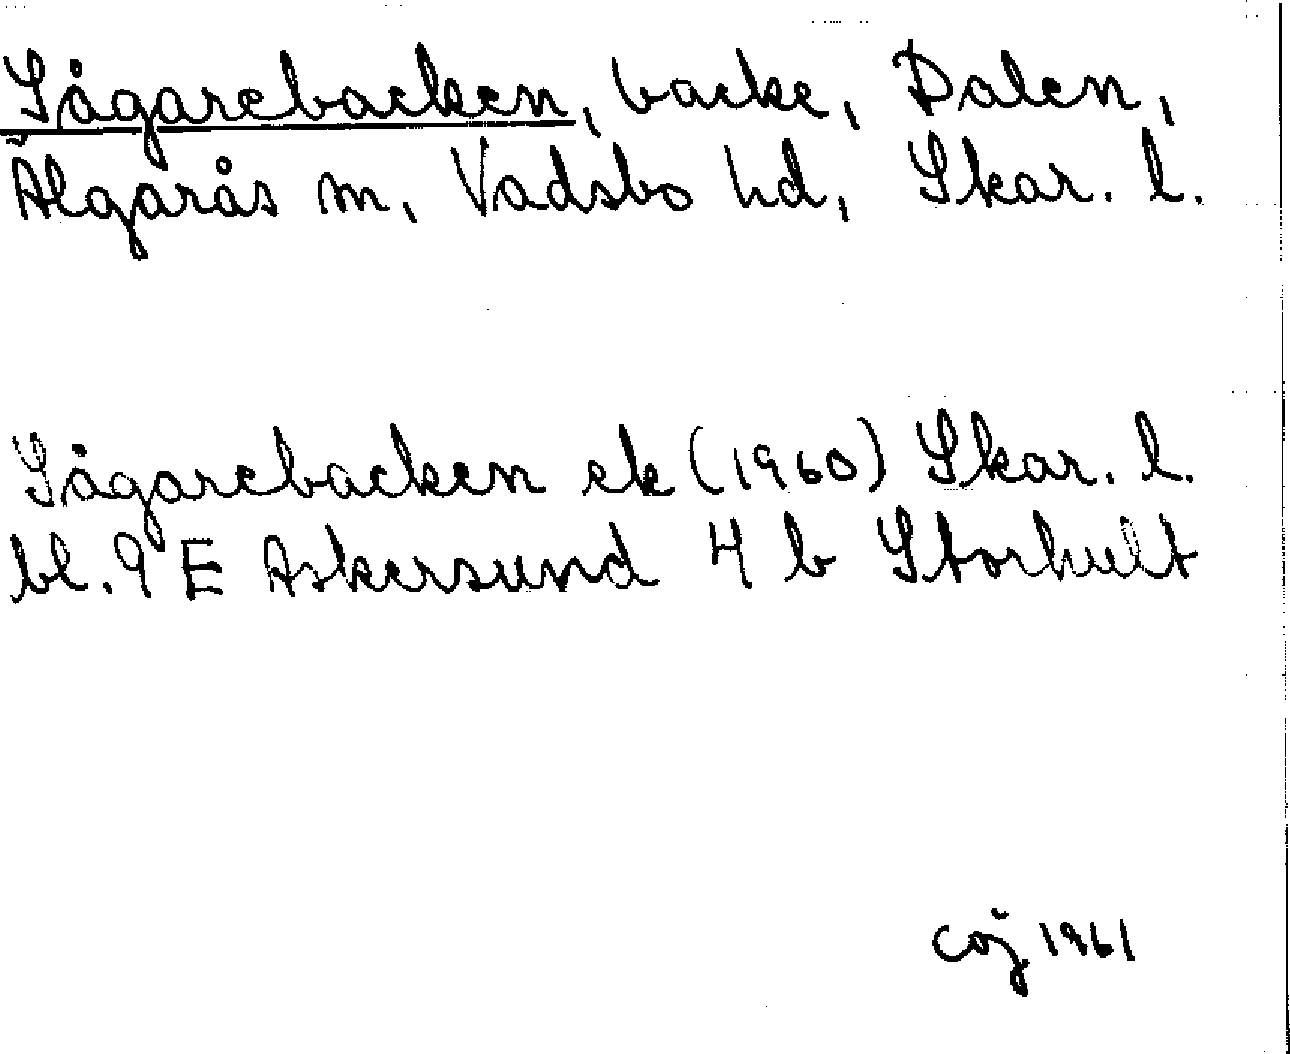 Sågarebacken, backe, Dalen,
Älgarås sn, Vadsbo hd, Skar. l.
Sågarebacken ek (1960) Skar. l.
bl. 9 E Askersund 4 b Storhult
CÖJ 1961